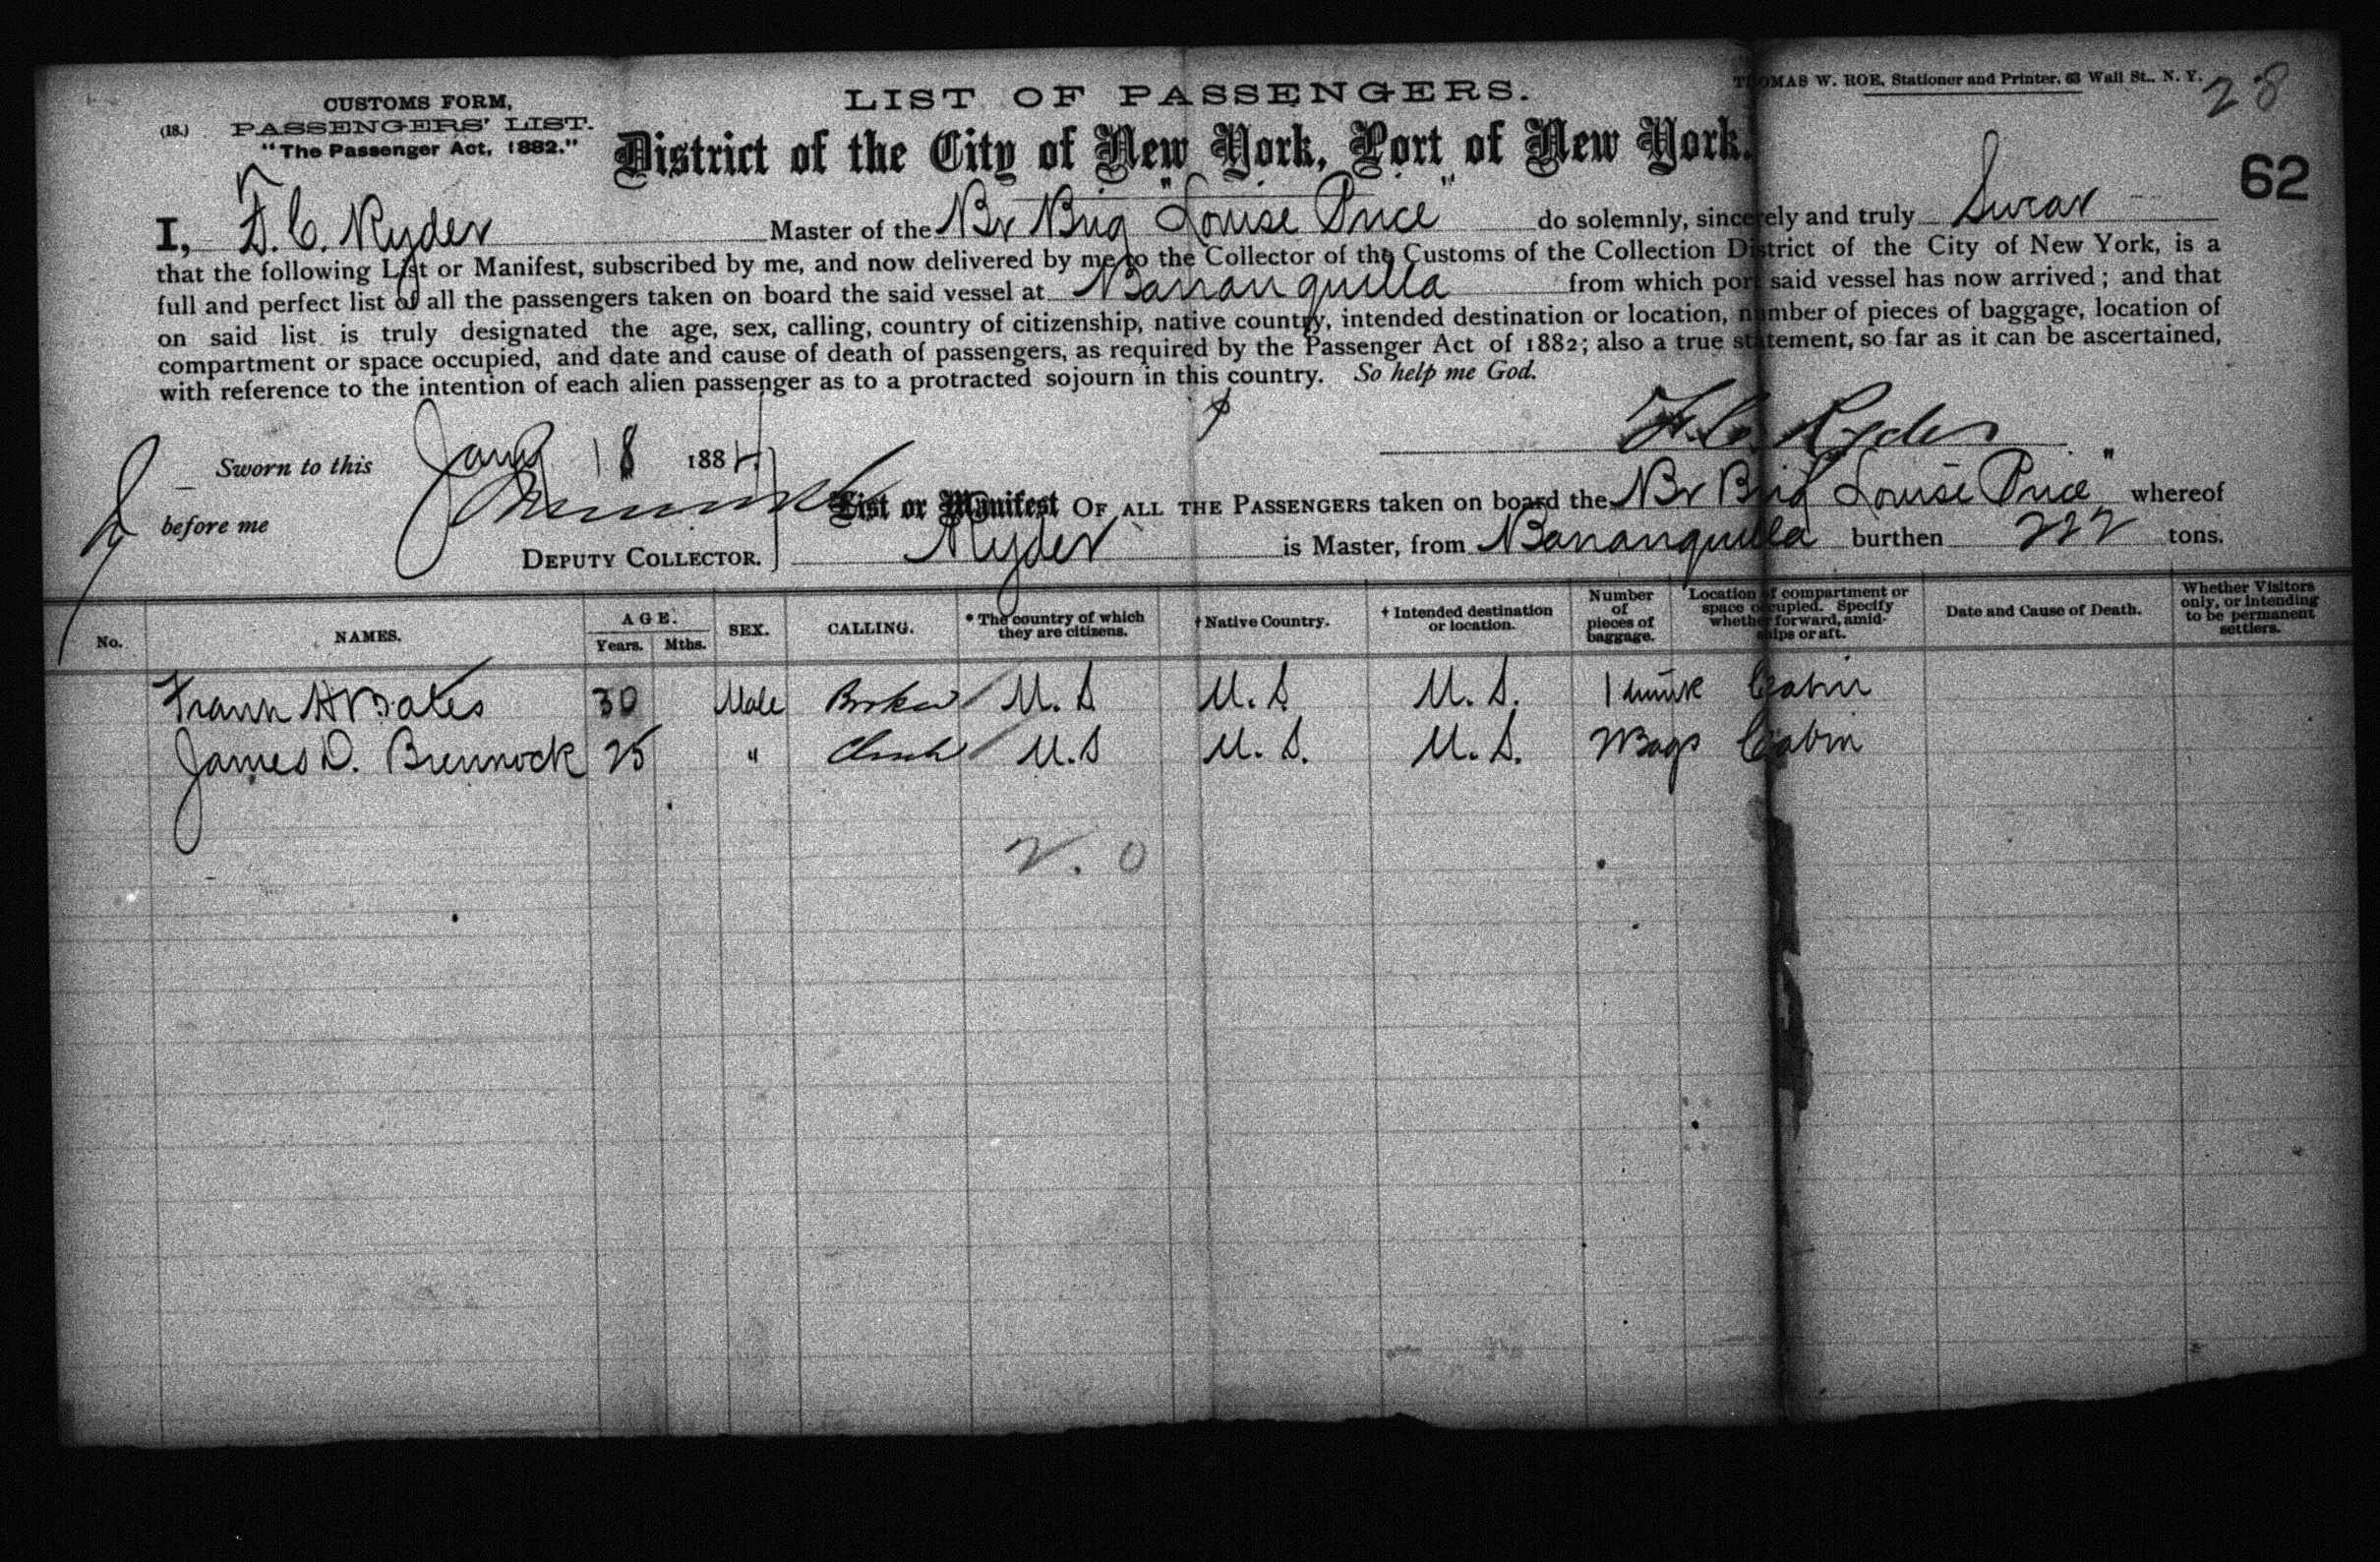 THOMAS W. ROE, Stationer and Printer, 63 Wall St., N. Y.
28
CUSTOMS FORM,
(18.) PASSENGERS' LIST.
"The Passenger Act, 1882."
LIST OF PASSENGERS.
District of the City of New York, Port of New York.
62
I, F. C. Ryder Master of the Br Brig "Louise Price" do solemnly, sincerely and truly Swear
that the following List or Manifest, subscribed by me, and now delivered by me to the Collector of the Customs of the Collection District of the City of New York, is a
full and perfect list of all the passengers taken on board the said vessel at Barranquilla from which port said vessel has now arrived; and that
on said list is truly designated the age, sex, calling, country of citizenship, native country, intended destination or location, number of pieces of baggage, location of
compartment or space occupied, and date and cause of death of passengers, as required by the Passenger Act of 1882; also a true statement, so far as it can be ascertained,
with reference to the intention of each alien passenger as to a protracted sojourn in this country. So help me God.
F. C. Ryder
Sworn to this Jany 18 1884
before me
DEPUTY COLLECTOR.
List or Manifest OF ALL THE PASSENGERS taken on board the Br Brig Louise Price" whereof
Ryder is Master, from Barranquilla burthen 222 tons.
No. NAMES. AGE. Years. Mths. SEX. CALLING. * The country of which they are citizens. † Native Country. † Intended destination or location. Number of pieces of baggage. Location of compartment or space occupied. Specify whether forward, amidships or aft. Date and Cause of Death. Whether Visitors only, or intending to be permanent settlers.
Frank H Bates 30 Male Broker U.S U.S U.S. 1 trunk Cabin
James D. Brennock 25 " Clerk U.S U.S. U.S. 2 Bags Cabin
2. 0